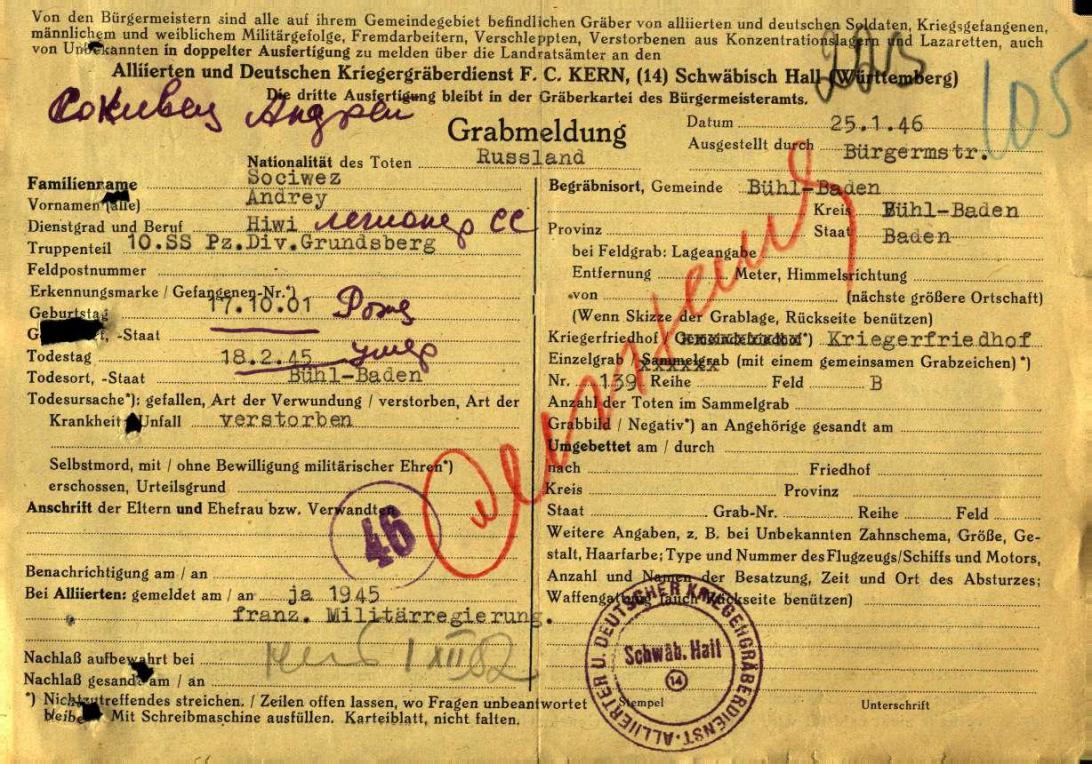 Von den Bürgermeistern sind alle auf ihrem Gemeindegebiet befindlichen Gräber von alliierten und deutschen Soldaten, Kriegsgefangenen,
männlichem und weiblichem Militärgefolge, Fremdarbeitern, Verschleppten, Verstorbenen aus Konzentrationslagern und Lazaretten, auch
von Unbekannten in doppelter Ausfertigung zu melden über die Landratsämter an den
Alliierten und Deutschen Kriegergräberdienst F. C. KERN, (14) Schwäbisch Hall (Württemberg)
Die dritte Ausfertigung bleibt in der Gräberkartei des Bürgermeisteramts.
105
Андрей
Grabmeldung
Datum 25.1.46
Ausgestellt durch Bürgermstr.
Nationalität des Toten Russland
Familienname Sociwez
Vornamen (alle) Andrey
Dienstgrad und Beruf Hiwi легионер СС
Truppenteil 10.SS Pz.Div.Grundsberg
Feldpostnummer
Erkennungsmarke / Gefangenen-Nr.*)
Geburtstag 17.10.01 Рожд
, -Staat
Todestag 18.2.45 умер
Todesort, -Staat Bühl-Baden
Todesursache*): gefallen, Art der Verwundung / verstorben, Art der
Krankheit Unfall verstorben
Selbstmord, mit / ohne Bewilligung militärischer Ehren*)
erschossen, Urteilsgrund
Anschrift der Eltern und Ehefrau bzw. Verwandten
46
Benachrichtigung am / an
Bei Alliierten: gemeldet am / an ja 1945
franz. Militärregierung.
Nachlaß aufbewahrt bei
Nachlaß gesandt am / an
*) Nichtzutreffendes streichen. / Zeilen offen lassen, wo Fragen unbeantwortet
bleiben Mit Schreibmaschine ausfüllen. Karteiblatt, nicht falten.
Begräbnisort, Gemeinde Bühl-Baden
Kreis Bühl-Baden
Provinz Staat Baden
bei Feldgrab: Lageangabe
Entfernung Meter, Himmelsrichtung
von (nächste größere Ortschaft)
(Wenn Skizze der Grablage, Rückseite benützen)
Kriegerfriedhof / Gemeindefriedhof*) Kriegerfriedhof
Einzelgrab / Sammelgrab (mit einem gemeinsamen Grabzeichen) *)
Nr. 139 Reihe Feld B
Anzahl der Toten im Sammelgrab
Grabbild / Negativ*) an Angehörige gesandt am
Umgebettet am / durch
nach Friedhof
Kreis Provinz
Staat Grab-Nr. Reihe Feld
Weitere Angaben, z. B. bei Unbekannten Zahnschema, Größe, Ge-
stalt, Haarfarbe; Type und Nummer des Flugzeugs/Schiffs und Motors,
Anzahl und Namen der Besatzung, Zeit und Ort des Absturzes;
Waffengattung (auch Rückseite benützen)
ALLIIERTER U. DEUTSCHER KRIEGERGRÄBERDIENST
Schwäb. Hall
14
Stempel Unterschrift